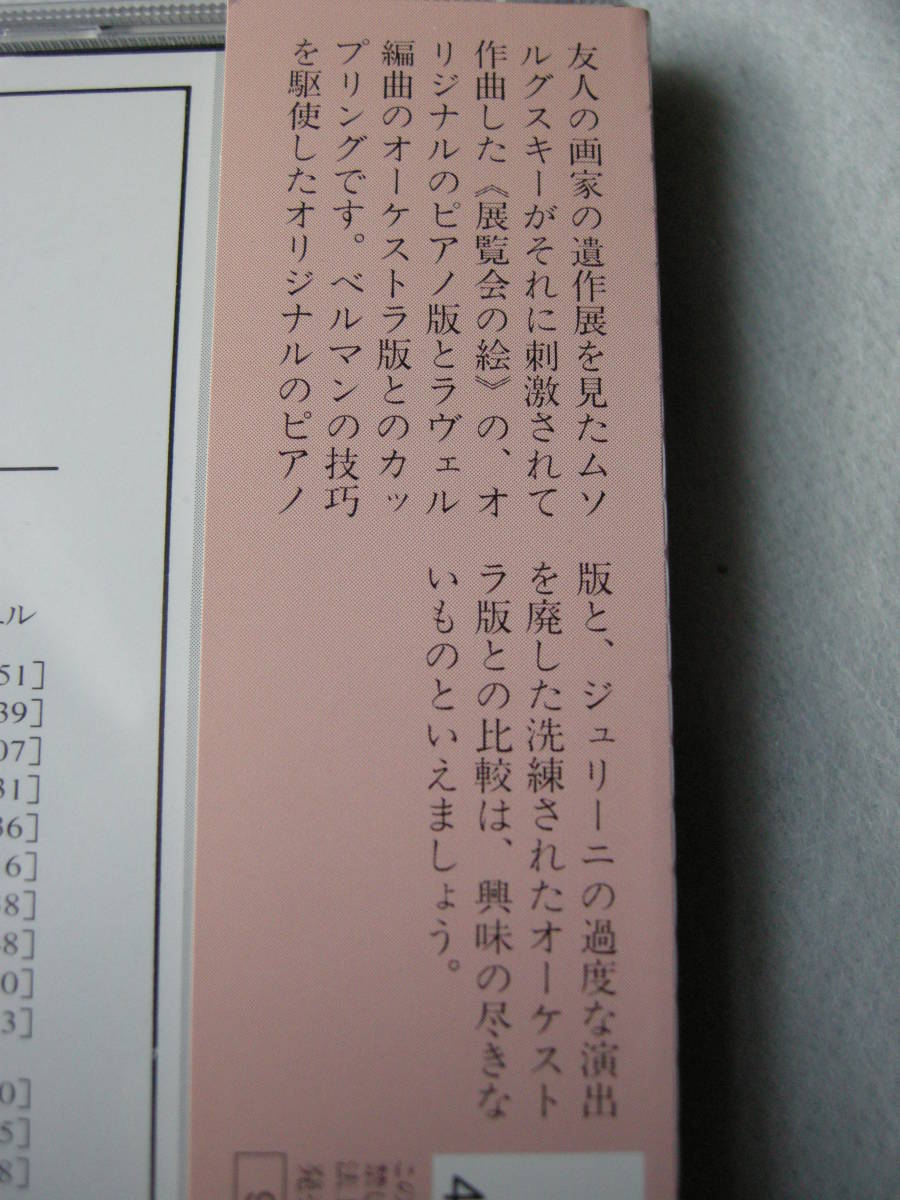 友人の画家の遺作展を見たムソ
ルグスキーがそれに刺激されて
作曲した《展覧会の絵》の、オ
リジナルのピアノ版とラヴェル
編曲のオーケストラ版とのカッ
プリングです。ベルマンの技巧
を駆使したオリジナルのピアノ
版と、ジュリーニの過度な演出
を廃した洗練されたオーケスト
ラ版との比較は、興味の尽きな
いものといえましょう。
ル
51]
39]
07]
31]
36]
6]
8]
8]
0]
3]
0]
5]
8]
4